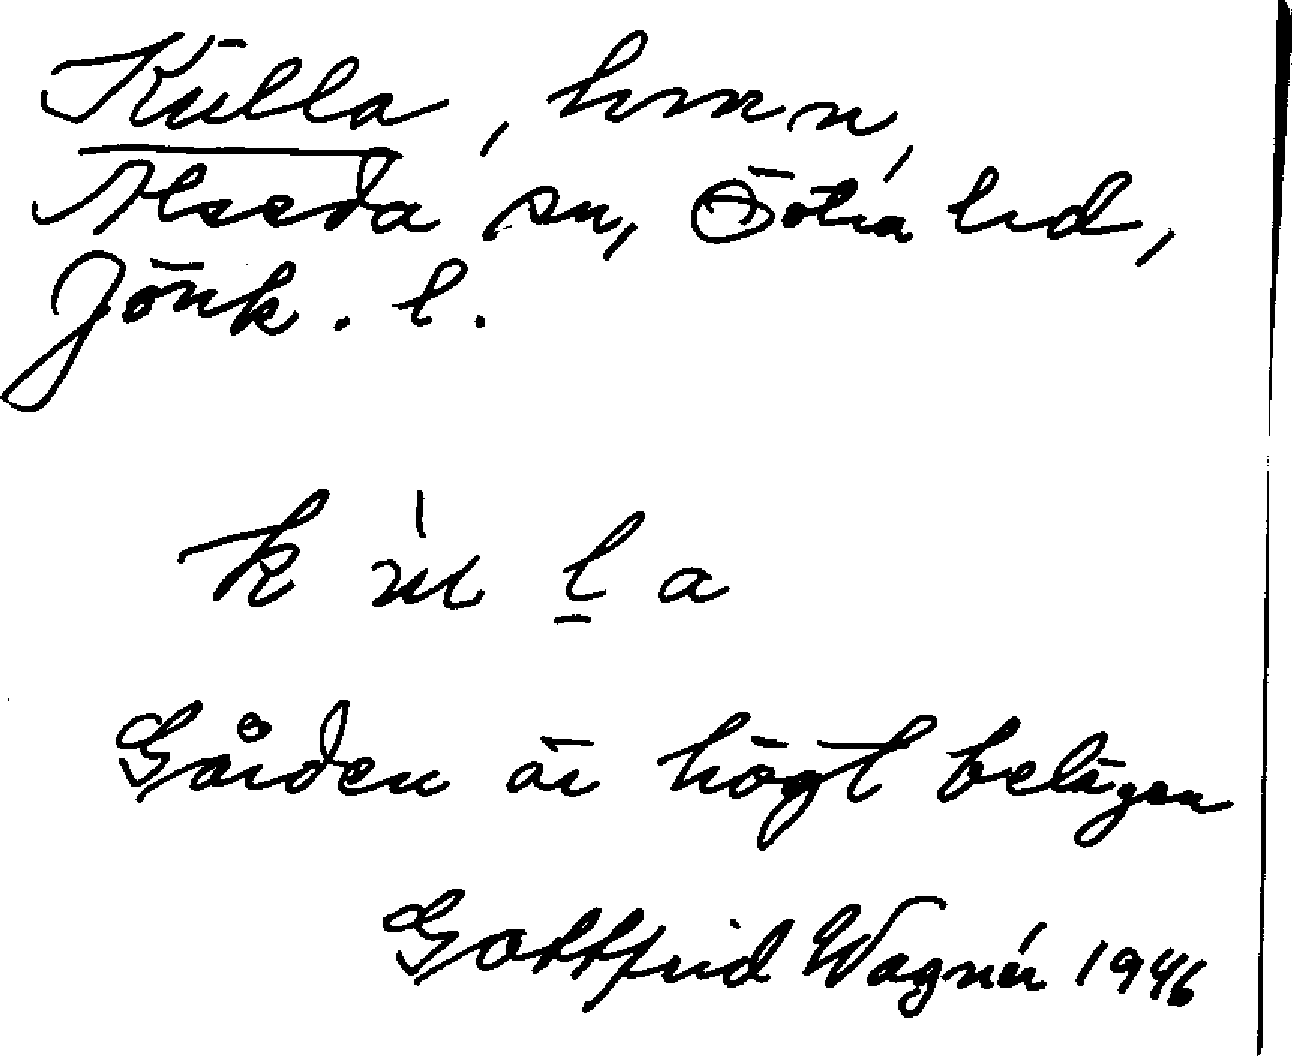 Kulla, hmn,
Alseda sn, Östra hd,
Jönk. l.
kùḻa
Gården är högt belägen
Gottfrid Wagnér 1946